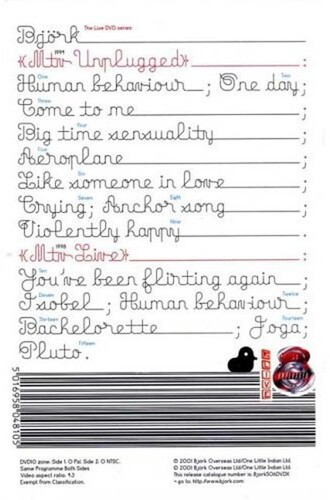 Björk The Live DVD series
1994
«Mtv Unplugged» :
One Two
Human behaviour ; One day;
Three
Come to me :
Four
Big time sensuality ;
Five
Aeroplane ;
Six
Like someone in love ;
Seven Eight
Crying; Anchor song ;
Nine
Violently happy .
1998
«Mtv Live» :
Ten
You've been flirting again ;
Eleven Twelve
Isobel ; Human behaviour ;
Thirteen Fourteen
Bachelorette ; Joga;
Fifteen
Pluto.
5016958048105
DVD10 zone: Side 1: 0 Pal Side 2: 0 NTSC.
Same Programme Both Sides
Video aspect ratio: 4:3
Exempt from Classification.
© 2001 Bjork Overseas Ltd/One Little Indian Ltd.
© 2001 Bjork Overseas Ltd/One Little Indian Ltd.
This release catalogue number is: Bjork506DVDX
- go to: http://www.bjork.com